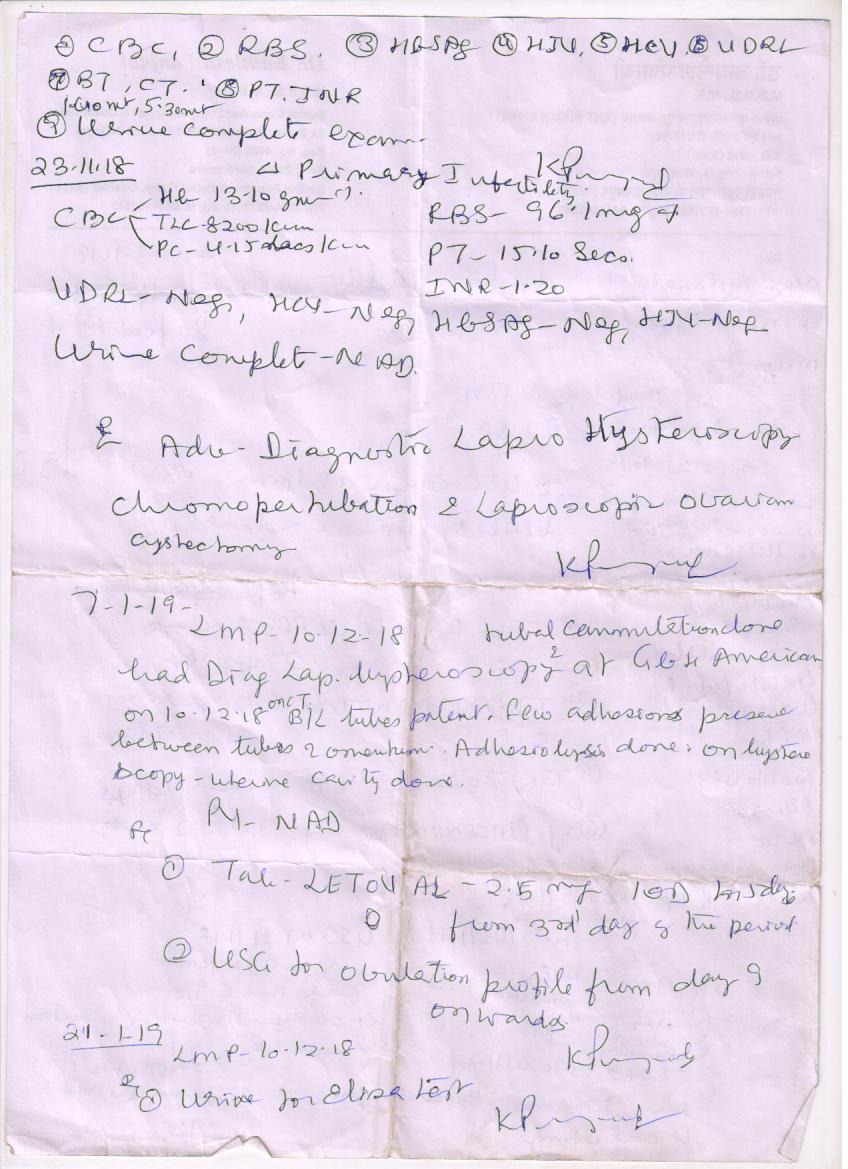 ① CBC, ② RBS. ③ HBSAg ④ HIV, ⑤ HCV ⑥ VDRL
⑦ BT, CT. ⑧ PT. INR
1.40mt, 5.30mt
⑨ Urine complete exam
23.11.18 Primary Infertility
CBC Hb 13.10gm
TLC-8200/cum
PC-4.15 lacs/cum
RBS- 96.1mg
PT- 15.10 Secs.
INR-1.20
VDRL-Neg, HCV-Neg, HBSAg-Neg, HIV-Neg
Urine Complet-NAD.
Adv-Diagnostic Lapro Hysteroscopy
chromopertubation & Laproscopic ovarian
cystectomy
7-1-19-
LMP-10-12-18 tubal cannulation done
had Diag Lap. hysteroscopy at American
on 10.12.18 B/L tubes patent. few adhesions present
between tubes & omentum. Adhesiolysis done. on hystero
scopy-uterine cavity done.
P/V- NAD
Rx
① Tab-LETOVAL-2.5mg 1OD for 5 days
from 3rd day of the period
② USG for ovulation profile from day 9
onwards.
21.1.19
LMP-10.12.18
Rx ① Urine for Elisa test